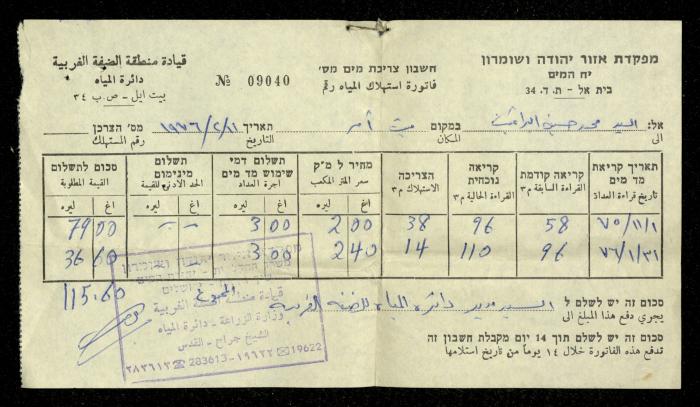 מפקדת אזור יהודה ושומרון
יח׳ המים
בית אל - ת. ד. 34
חשבון צריכת מים מס׳
فاتورة استهلاك المياه رقم
№ 09040
قيادة منطقة الضفة الغربية
دائرة المياه
بيت ايل - ص. ب ٣٤
אל: السيد محمد حسين
الى
במקום بيت أمر
المكان
תאריך ١٩٧٦/٢/١١
التاريخ
מס׳ הצרכן
رقم المستهلك
תאריך קריאת מד מים
تاريخ قراءة العداد
קריאה קודמת
القراءة السابقة م٣
קריאה נוכחית
القراءة الحالية م٣
הצריכה
الاستهلاك م٣
מחיר ל מ״ק
سعر المتر المكعب
اغ ليره
תשלום דמי שימוש מד מים
اجرة العداد
اغ ليره
תשלום מינימום
الحد الادنى للقيمة
اغ ليره
סכום לתשלום
القيمة المطلوبة
اغ ليره
٧٥/١١/١ 58 96 38 2 00 3 00 - - 79 00
٧٦/١/٣١ 96 110 14 2 40 3 00 36 60
المجموع 115.60
סכום זה יש לשלם ל السيد مدير دائرة المياه للضفة الغربية
يجري دفع هذا المبلغ الى
סכום זה יש לשלם תוך 14 יום מקבלת חשבון זה
تدفع هذه الفاتورة خلال ١٤ يوماً من تاريخ استلامها
قيادة منطقة الضفة الغربية
وزارة الزراعة - دائرة المياه
الشيخ جراح - القدس
٢٨٣٦١٣ ☎ 283613 - ١٩٦٢٢ ✉ 19622